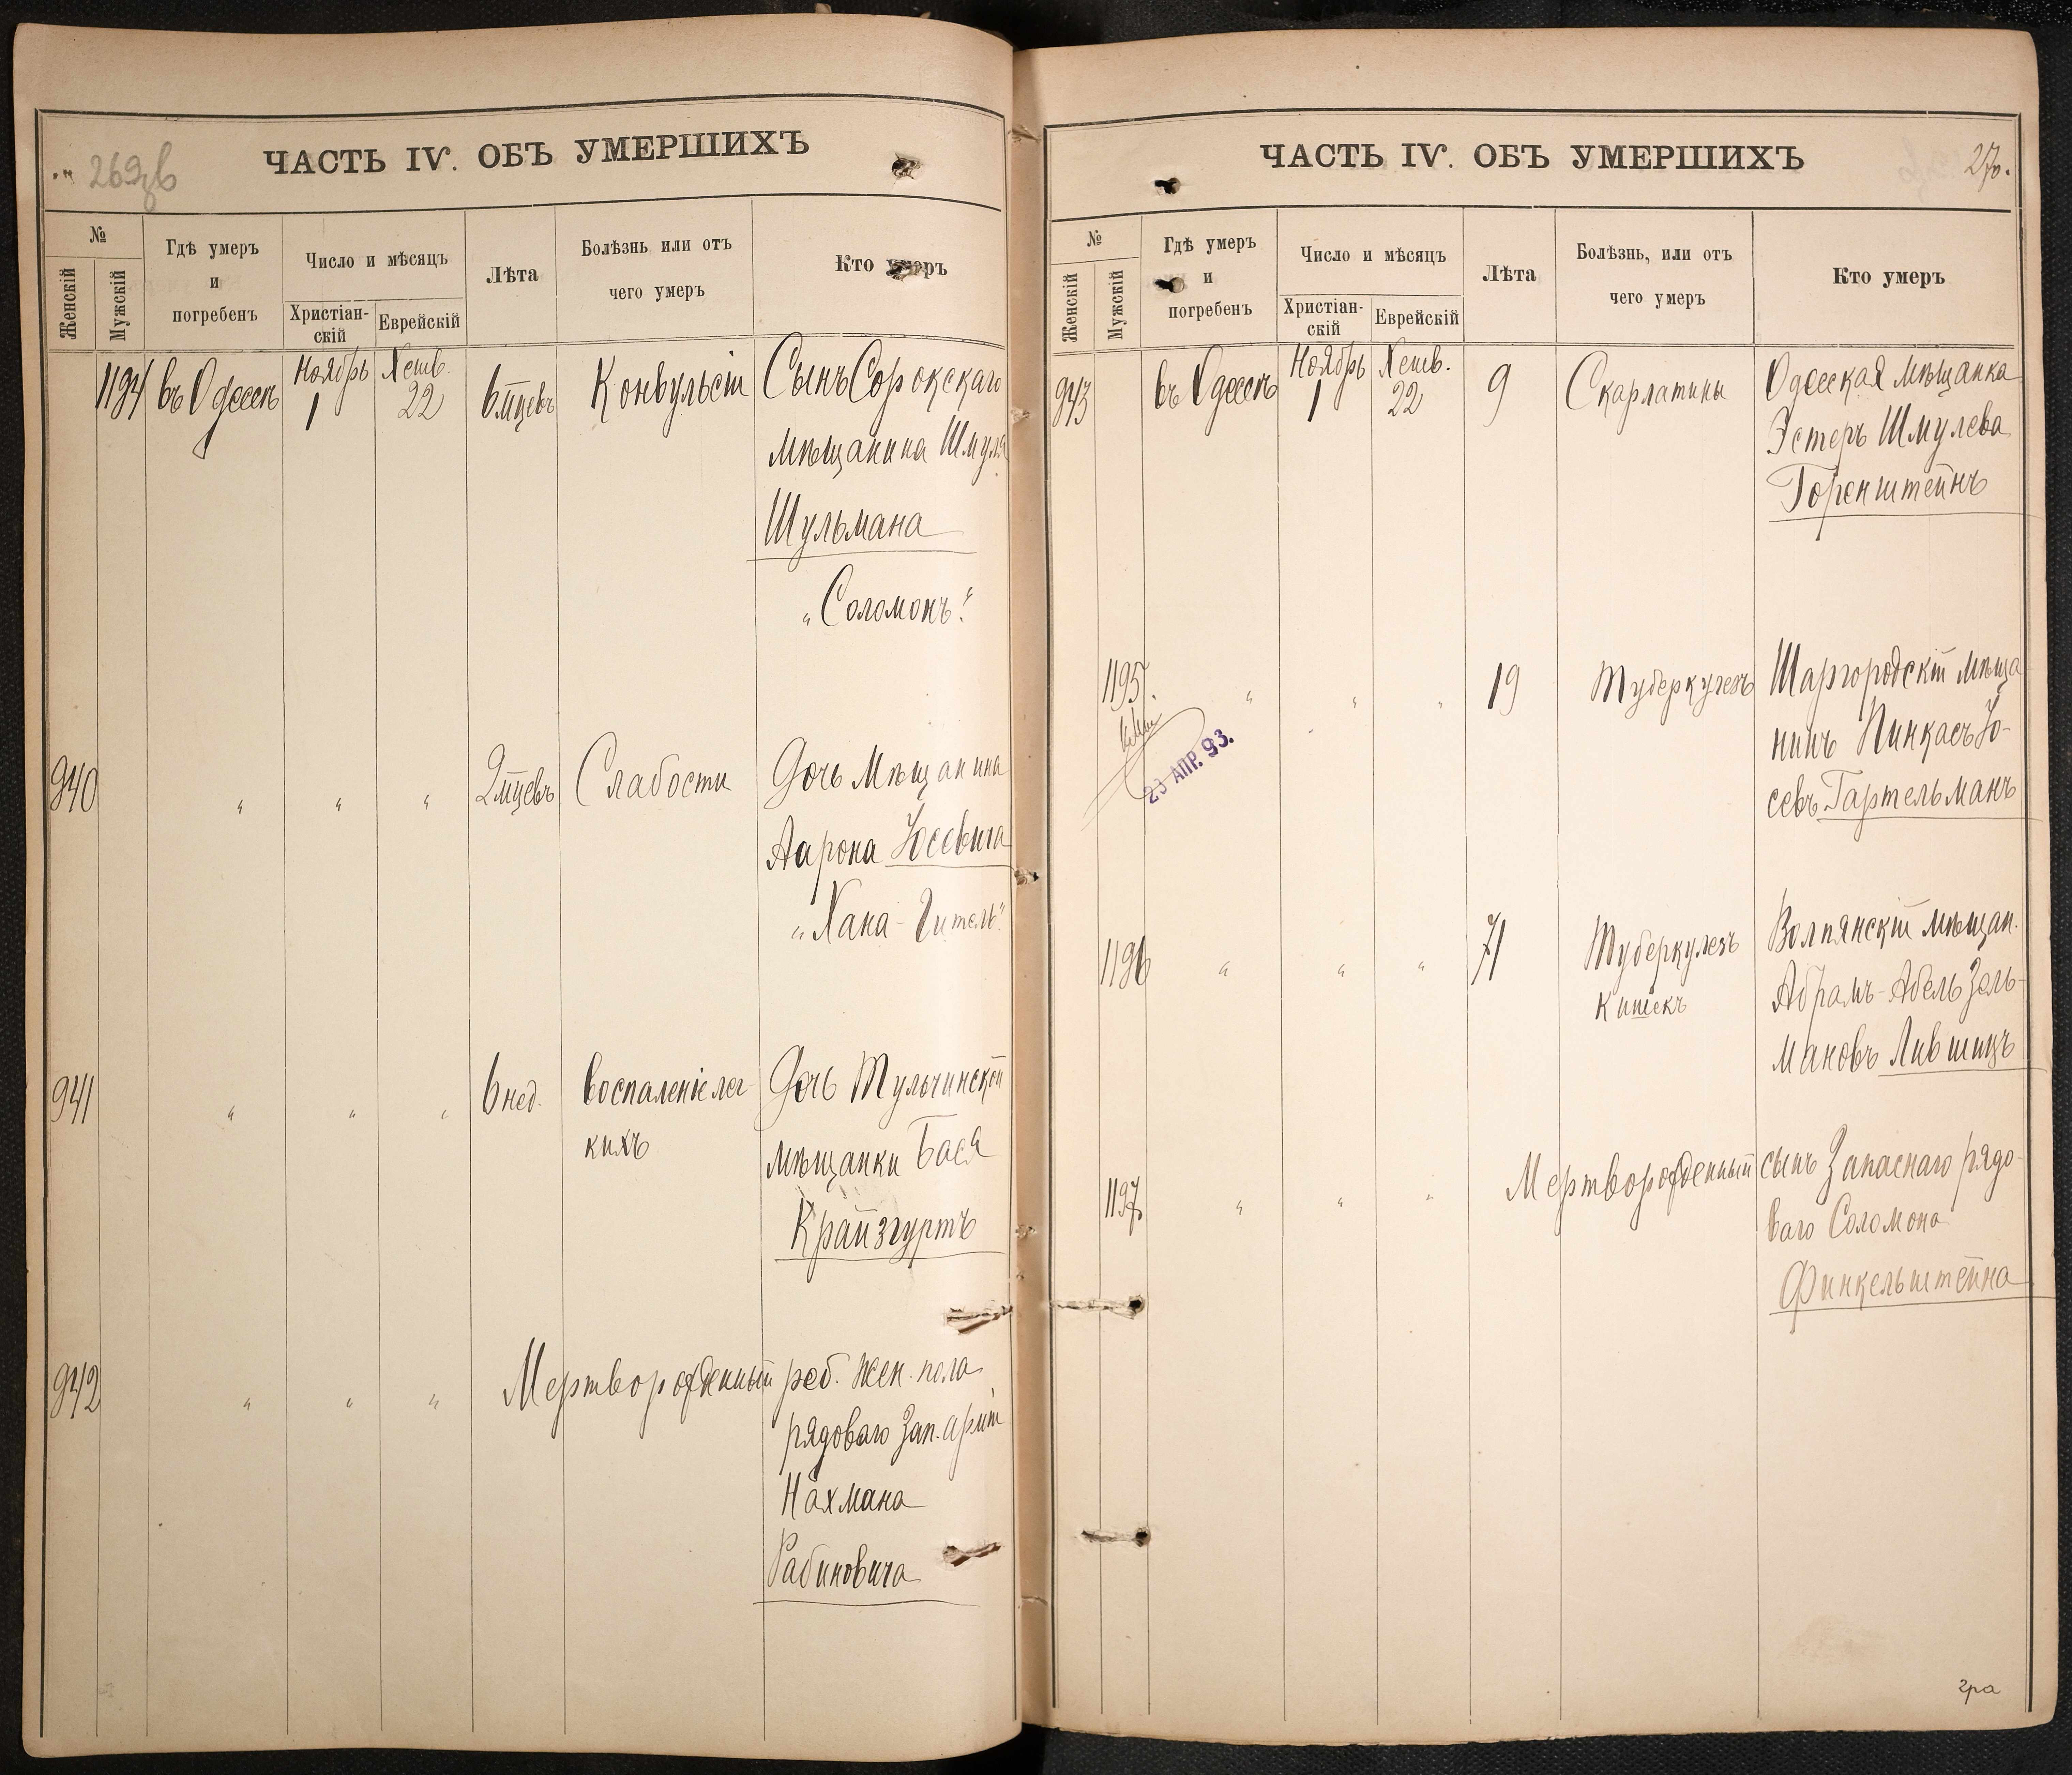 269об
ЧАСТЬ IV. ОБЪ УМЕРШИХЪ
№
Женскій
Мужскій
Гдѣ умеръ
и
погребенъ
Число и мѣсяцъ
Христіан-
скій
Еврейскій
Лѣта
Болѣзнь или отъ
чего умеръ
Кто умеръ
1194 въ Одессѣ Ноябрь 1 Хешв. 22 6 мцевъ Конвульсіи Сынъ Сорокскаго
мѣщанина Шмуля
Шульмана
„Соломонъ“
940 " " " 2 мцевъ Слабости Дочь Мѣщанина
Аарона Юсевича
„Хана-Гитель“
941 " " " 6 нед. Воспаленіе лег-
кихъ
Дочь Тульчинской
мѣщанки Бася
Крайзгуртъ
942 " " " Мертворожденный реб. жен. пола
рядоваго Зап. арміи
Нахмана
Рабиновича
ЧАСТЬ IV. ОБЪ УМЕРШИХЪ
270.
№
Женскій
Мужскій
Гдѣ умеръ
и
погребенъ
Число и мѣсяцъ
Христіан-
скій
Еврейскій
Лѣта
Болѣзнь, или отъ
чего умеръ
Кто умеръ
943 въ Одессѣ Ноябрь 1 Хешв. 22 9 Скарлатины Одесская мѣщанка
Эстеръ Шмулева
Горенштейнъ
1195. " " " 19 Туберкулезъ Шаргородскій мѣща
нинъ Пинкасъ Іо-
севъ Гартельманъ
23 АПР. 93.
1196 " " " 71 Туберкулезъ
кишекъ
Волпянскій мѣщан.
Абрамъ-Абель Зель-
мановъ Лившицъ
1197 " " " Мертворожденный сынъ Запаснаго рядо-
ваго Соломона
Финкельштейна